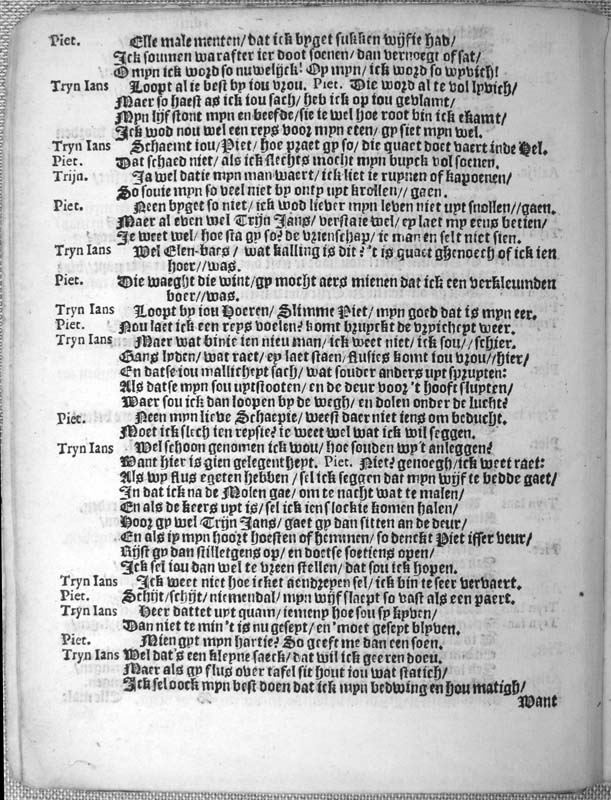 Piet. Elle male menten/ dat ick byget sukken wyfie had/
Ick sounnen warafter ier doot soenen/ dan vernoegt of sat/
O myn ick word so nuwelijck! Op myn/ ick word so wyvich!
Tryn Ians Loopt al ie best by iou vrou. Piet. Die word al te vol lyvich/
Maer so haest as ick iou sach/ heb ick op iou gevlamt/
Myn lyf stont myn en beefde/ sie ie wel hoe root bin ick ekamt/
Ick wod nou wel een reys voor myn eten/ gy siet myn wel.
Tryn Ians Schaemt iou/ Piet/ hoe praet gy so/ die quaet doet vaert inde Hel.
Piet. Dat schaed niet/ als ick slechts mocht myn buyck vol soenen.
Trijn. Ja wel datie myn man waert/ ick liet ie ruynen of kapoenen/
So souie myn so veel niet by onty uyt krollen// gaen.
Piet. Neen byget so niet/ ick wod liever myn leven niet uyt snollen//gaen.
Maer al even wel Trijn Jans/ verstaie wel/ ey laet my eens betien/
Je weet wel/ hoe sta gy so? de vrienschap/ ie man en selt niet sien.
Tryn Ians Wel Elen-baes/ wat kalling is dit? 't is quaet ghenoech of ick ien
hoer//was.
Piet. Die waeght die wint/ gy mocht aers mienen dat ick een verkleumden
boer//was.
Tryn Ians Loopt by iou Hoeren/ Slimme Piet/ myn goed dat is myn eer.
Piet. Nou laet ick een reys voelen? komt bruyckt de vryicheyt weer.
Tryn Ians Maer wat binie ien nieu man/ ick weet niet/ ick sou//schier.
Gans lyden/ wat raet/ ey laet staen/ flusies komt iou vrou//hier/
En datse iou mallicheyt sach/ wat souder anders uyt spruyten:
Als datse myn sou uytstooten/ en de deur voor 't hooft sluyten/
Waer sou ick dan loopen by de wegh/ en dolen onder de lucht?
Piet. Neen myn lieve Schaepie/ weest daer niet iens om beducht.
Moet ick slech ien repsie? ie weet wel wat ick wil seggen.
Tryn Ians Wel schoon genomen ick wou/ hoe souden wy't anleggen?
Want hier is gien gelegentheyt. Piet. Niet? genoegh/ ick weet raet:
Als wy flus egeten hebben/ sel ick seggen dat myn wijf te bedde gaet/
In dat ick na de Molen gae/ om te nacht wat te malen/
En als de keers uyt is/ sel ick iens lockie komen halen/
Hoor gy wel Trijn Jans/ gaet gy dan sitten an de deur/
En als iy myn hoort hoesten of hemmen/ so denckt Piet isser veur/
Rijst gy dan stilletgens op/ en doetse soetiens open/
Ick sel iou dan wel te vreen stellen/ dat sou ick hopen.
Tryn Ians Ick weet niet hoe icket aendreyen sel/ ick bin te seer vervaert.
Piet. Schijt/ schijt/ niemendal/ myn wyf slaept so vast als een paert.
Tryn Ians Heer dattet uyt quam/ iemeny hoe sou sy kyven/
Dan niet te min 't is nu geseyt/ en 'moet geseyt blyven.
Piet. Mien gyt myn hartie? So geeft me dan een soen.
Tryn Ians Wel dat's een kleyne saeck/ dat wil ick geeren doen.
Maer als gy flus over tafel sit hout iou wat statich/
Ick sel oock myn best doen dat ick myn bedwing en hou matigh/
Want